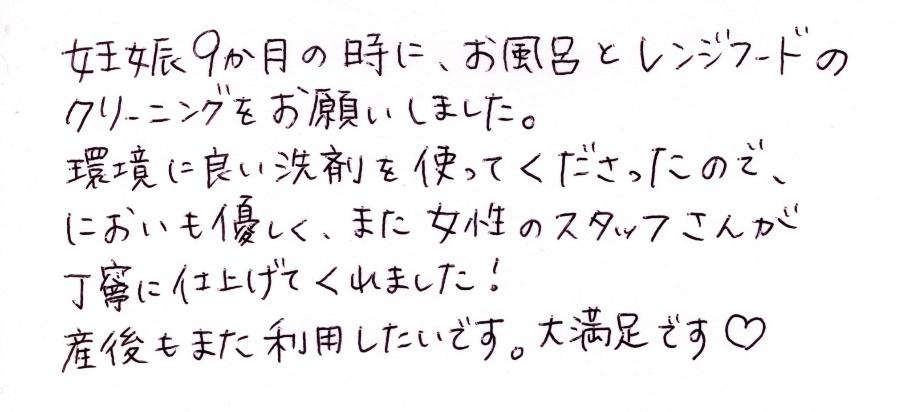 妊娠9か月の時に、お風呂とレンジフードの
クリーニングをお願いしました。
環境に良い洗剤を使ってくださったので、
においも優しく、また女性のスタッフさんが
丁寧に仕上げてくれました!
産後もまた利用したいです。大満足です♡